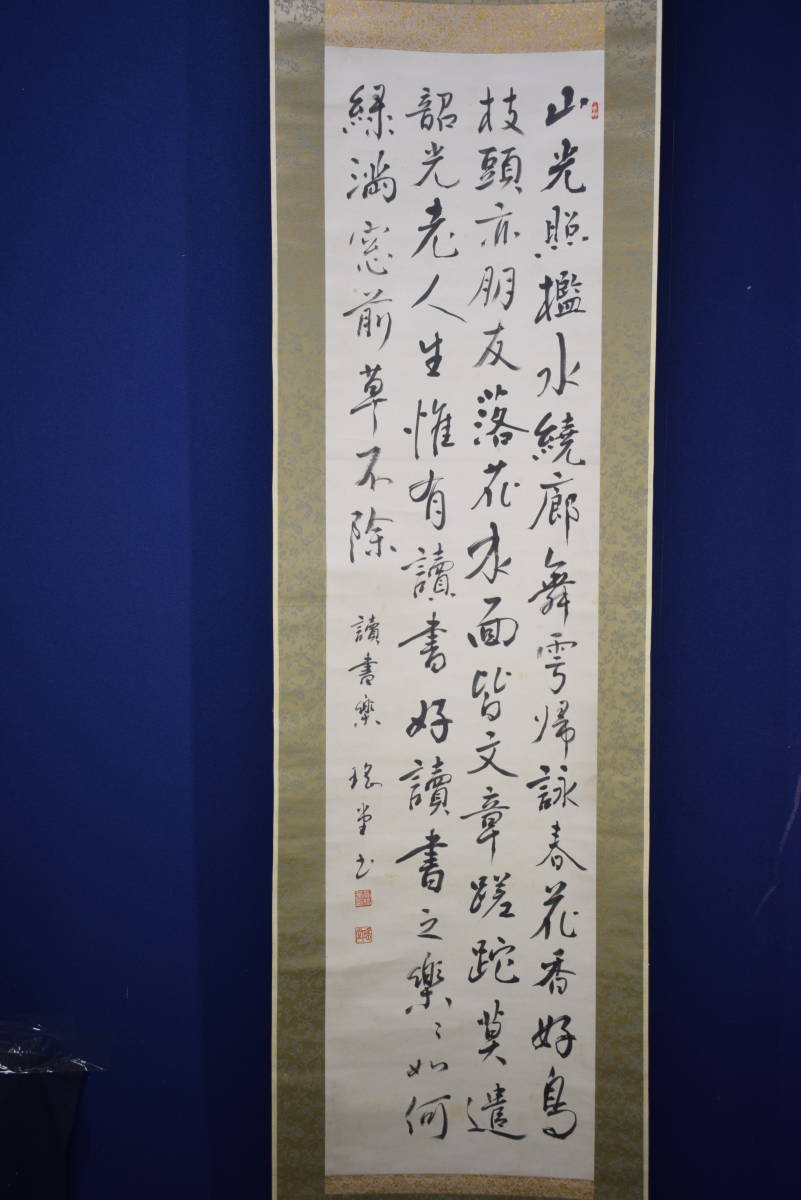 山光照檻水繞廊舞雩帰詠春花香好鳥
枝頭亦朋友落花水面皆文章蹉跎莫遣
韶光老人生惟有讀書好讀書之樂〻如何
緑満窓前草不除 讀書樂 瑤堂书